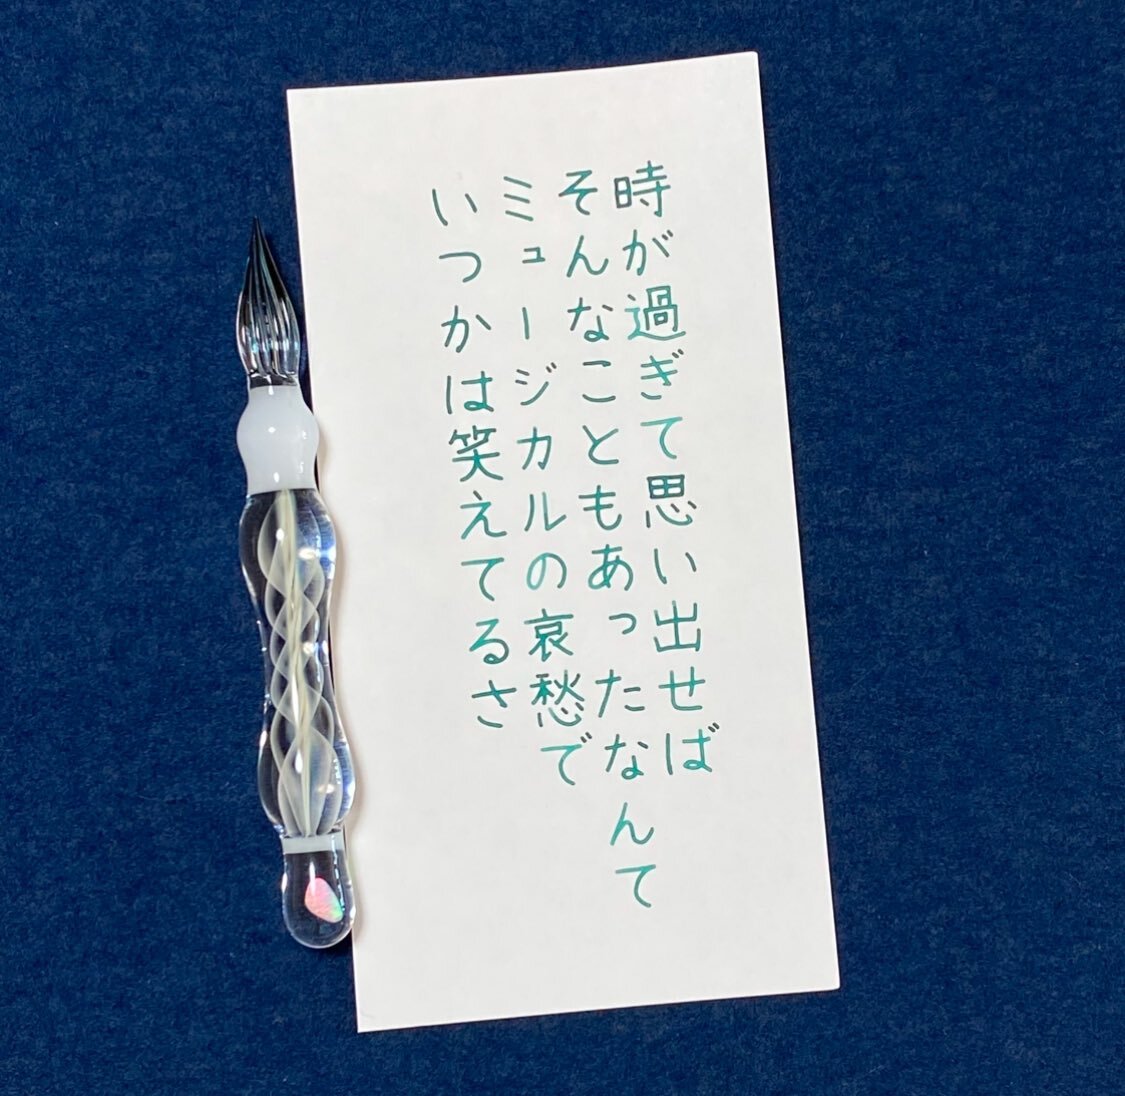 時が過ぎて思い出せば
そんなこともあったなんて
ミュージカルの哀愁で
いつかは笑えてるさ